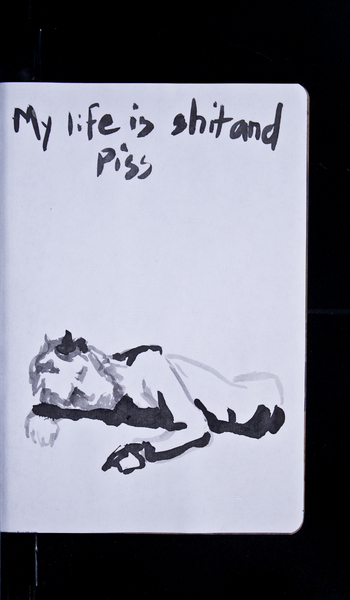 My life is shit and
Piss